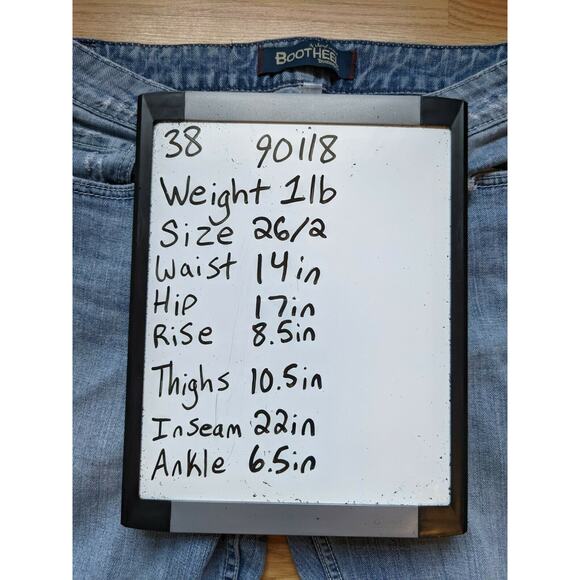 BOOTHEE
38 90118
Weight 1lb
Size 26/2
Waist 14in
Hip 17in
Rise 8.5in
Thighs 10.5in
Inseam 22in
Ankle 6.5in